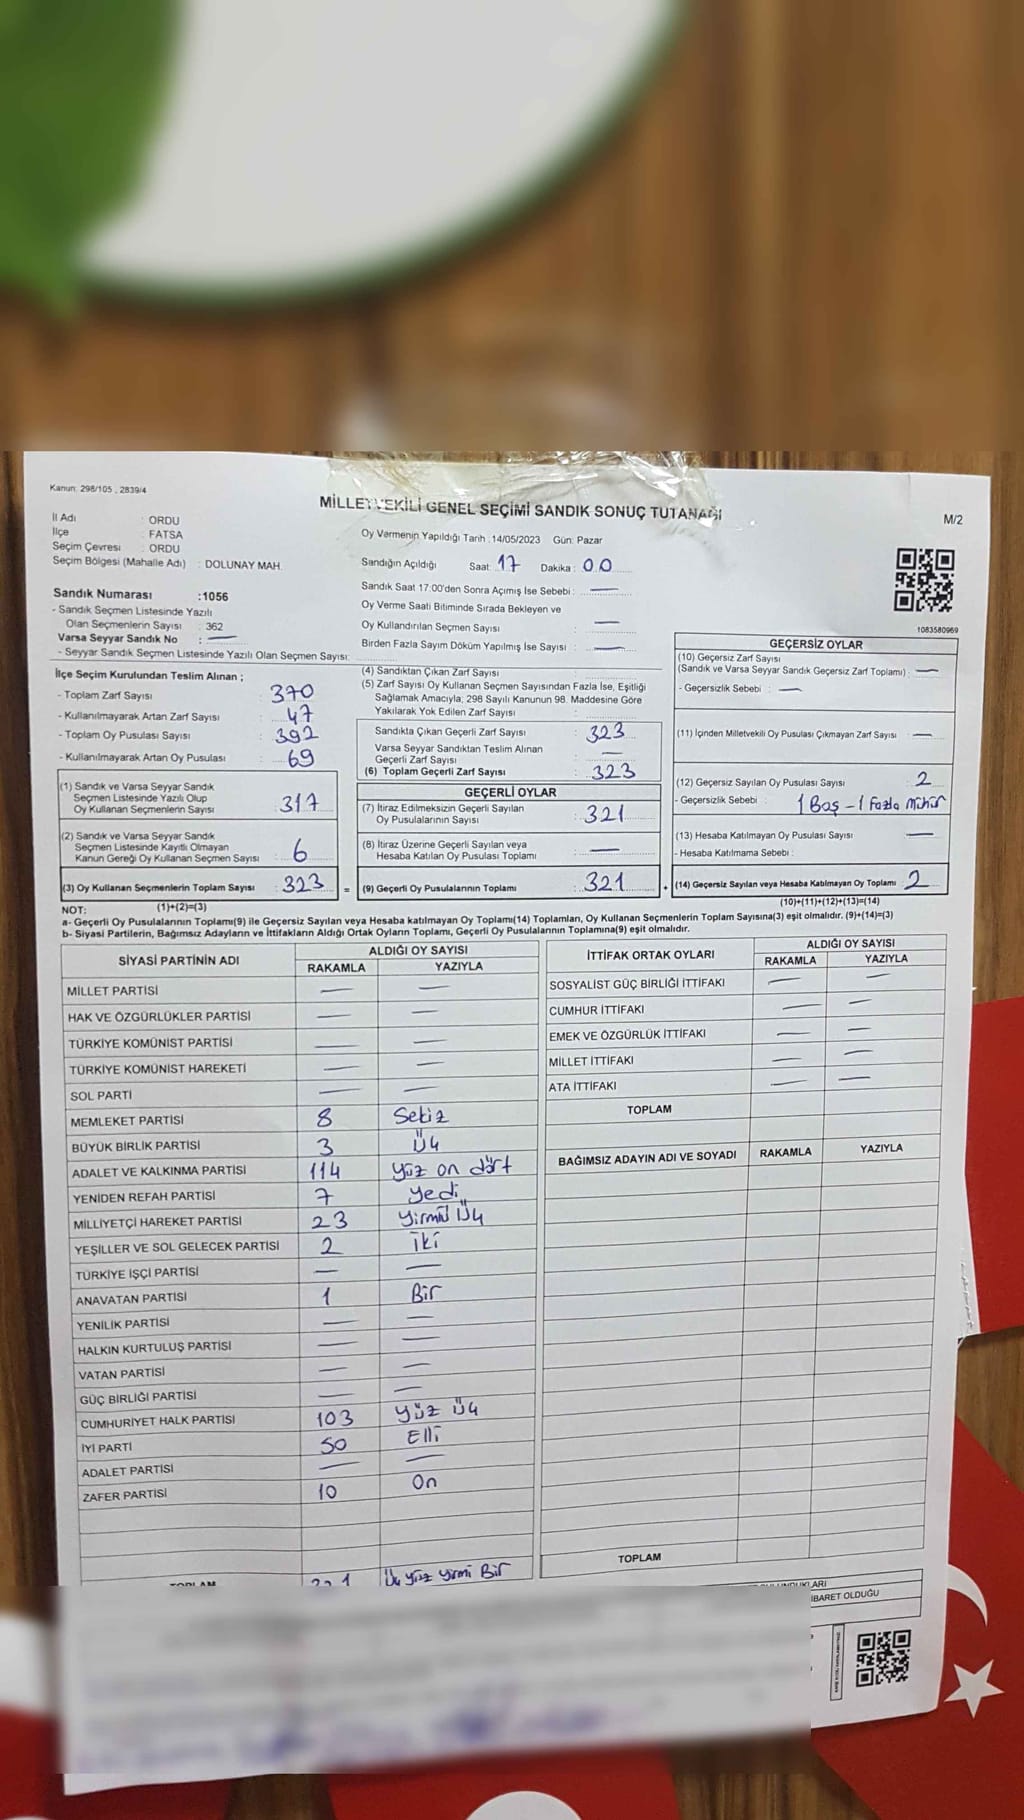 Kanun: 298/105 , 2839/4
MİLLETVEKİLİ GENEL SEÇİMİ SANDIK SONUÇ TUTANAĞI
M/2
İl Adı : ORDU
İlçe : FATSA
Seçim Çevresi : ORDU
Seçim Bölgesi (Mahalle Adı) : DOLUNAY MAH.
Oy Vermenin Yapıldığı Tarih :14/05/2023 Gün: Pazar
Sandığın Açıldığı Saat: 17 Dakika : 00
Sandık Saat 17:00'den Sonra Açımış İse Sebebi : —
Oy Verme Saati Bitiminde Sırada Bekleyen ve
Oy Kullandırılan Seçmen Sayısı : —
Birden Fazla Sayım Döküm Yapılmış İse Sayısı : —
1083580969
Sandık Numarası :1056
- Sandık Seçmen Listesinde Yazılı
Olan Seçmenlerin Sayısı : 362
Varsa Seyyar Sandık No : —
- Seyyar Sandık Seçmen Listesinde Yazılı Olan Seçmen Sayısı:
İlçe Seçim Kurulundan Teslim Alınan ;
- Toplam Zarf Sayısı : 370
- Kullanılmayarak Artan Zarf Sayısı : 47
- Toplam Oy Pusulası Sayısı : 392
- Kullanılmayarak Artan Oy Pusulası : 69
(1) Sandık ve Varsa Seyyar Sandık
Seçmen Listesinde Yazılı Olup
Oy Kullanan Seçmenlerin Sayısı : 317
(2) Sandık ve Varsa Seyyar Sandık
Seçmen Listesinde Kayıtlı Olmayan
Kanun Gereği Oy Kullanan Seçmen Sayısı : 6
(3) Oy Kullanan Seçmenlerin Toplam Sayısı : 323 =
(1)+(2)=(3)
(4) Sandıktan Çıkan Zarf Sayısı :
(5) Zarf Sayısı Oy Kullanan Seçmen Sayısından Fazla İse, Eşitliği
Sağlamak Amacıyla, 298 Sayılı Kanunun 98. Maddesine Göre
Yakılarak Yok Edilen Zarf Sayısı :
Sandıkta Çıkan Geçerli Zarf Sayısı : 323
Varsa Seyyar Sandıktan Teslim Alınan
Geçerli Zarf Sayısı : —
(6) Toplam Geçerli Zarf Sayısı : 323
GEÇERLİ OYLAR
(7) İtiraz Edilmeksizin Geçerli Sayılan
Oy Pusulalarının Sayısı : 321
(8) İtiraz Üzerine Geçerli Sayılan veya
Hesaba Katılan Oy Pusulası Toplamı : —
(9) Geçerli Oy Pusulalarının Toplamı : 321 +
GEÇERSİZ OYLAR
(10) Geçersiz Zarf Sayısı
(Sandık ve Varsa Seyyar Sandık Geçersiz Zarf Toplamı) : —
- Geçersizlik Sebebi : —
(11) İçinden Milletvekili Oy Pusulası Çıkmayan Zarf Sayısı : —
(12) Geçersiz Sayılan Oy Pusulası Sayısı : 2
- Geçersizlik Sebebi : 1 Boş - 1 Fazla Mühür
(13) Hesaba Katılmayan Oy Pusulası Sayısı : —
- Hesaba Katılmama Sebebi :
(14) Geçersiz Sayılan veya Hesaba Katılmayan Oy Toplamı : 2
(10)+(11)+(12)+(13)=(14)
NOT:
a- Geçerli Oy Pusulalarının Toplamı(9) ile Geçersiz Sayılan veya Hesaba katılmayan Oy Toplamı(14) Toplamları, Oy Kullanan Seçmenlerin Toplam Sayısına(3) eşit olmalıdır. (9)+(14)=(3)
b- Siyasi Partilerin, Bağımsız Adayların ve İttifakların Aldığı Ortak Oyların Toplamı, Geçerli Oy Pusulalarının Toplamına(9) eşit olmalıdır.
SİYASİ PARTİNİN ADI ALDIĞI OY SAYISI
RAKAMLA YAZIYLA
MİLLET PARTİSİ — —
HAK VE ÖZGÜRLÜKLER PARTİSİ — —
TÜRKİYE KOMÜNİST PARTİSİ — —
TÜRKİYE KOMÜNİST HAREKETİ — —
SOL PARTİ — —
MEMLEKET PARTİSİ 8 Sekiz
BÜYÜK BİRLİK PARTİSİ 3 Üç
ADALET VE KALKINMA PARTİSİ 114 Yüz on dört
YENİDEN REFAH PARTİSİ 7 Yedi
MİLLİYETÇİ HAREKET PARTİSİ 23 Yirmi Üç
YEŞİLLER VE SOL GELECEK PARTİSİ 2 İki
TÜRKİYE İŞÇİ PARTİSİ — —
ANAVATAN PARTİSİ 1 Bir
YENİLİK PARTİSİ — —
HALKIN KURTULUŞ PARTİSİ — —
VATAN PARTİSİ — —
GÜÇ BİRLİĞİ PARTİSİ — —
CUMHURİYET HALK PARTİSİ 103 Yüz Üç
İYİ PARTİ 50 Elli
ADALET PARTİSİ — —
ZAFER PARTİSİ 10 On
TOPLAM 321 Üç yüz yirmi Bir
İTTİFAK ORTAK OYLARI ALDIĞI OY SAYISI
RAKAMLA YAZIYLA
SOSYALİST GÜÇ BİRLİĞİ İTTİFAKI — —
CUMHUR İTTİFAKI — —
EMEK VE ÖZGÜRLÜK İTTİFAKI — —
MİLLET İTTİFAKI — —
ATA İTTİFAKI — —
TOPLAM
BAĞIMSIZ ADAYIN ADI VE SOYADI RAKAMLA YAZIYLA
TOPLAM
İBARET OLDUĞU